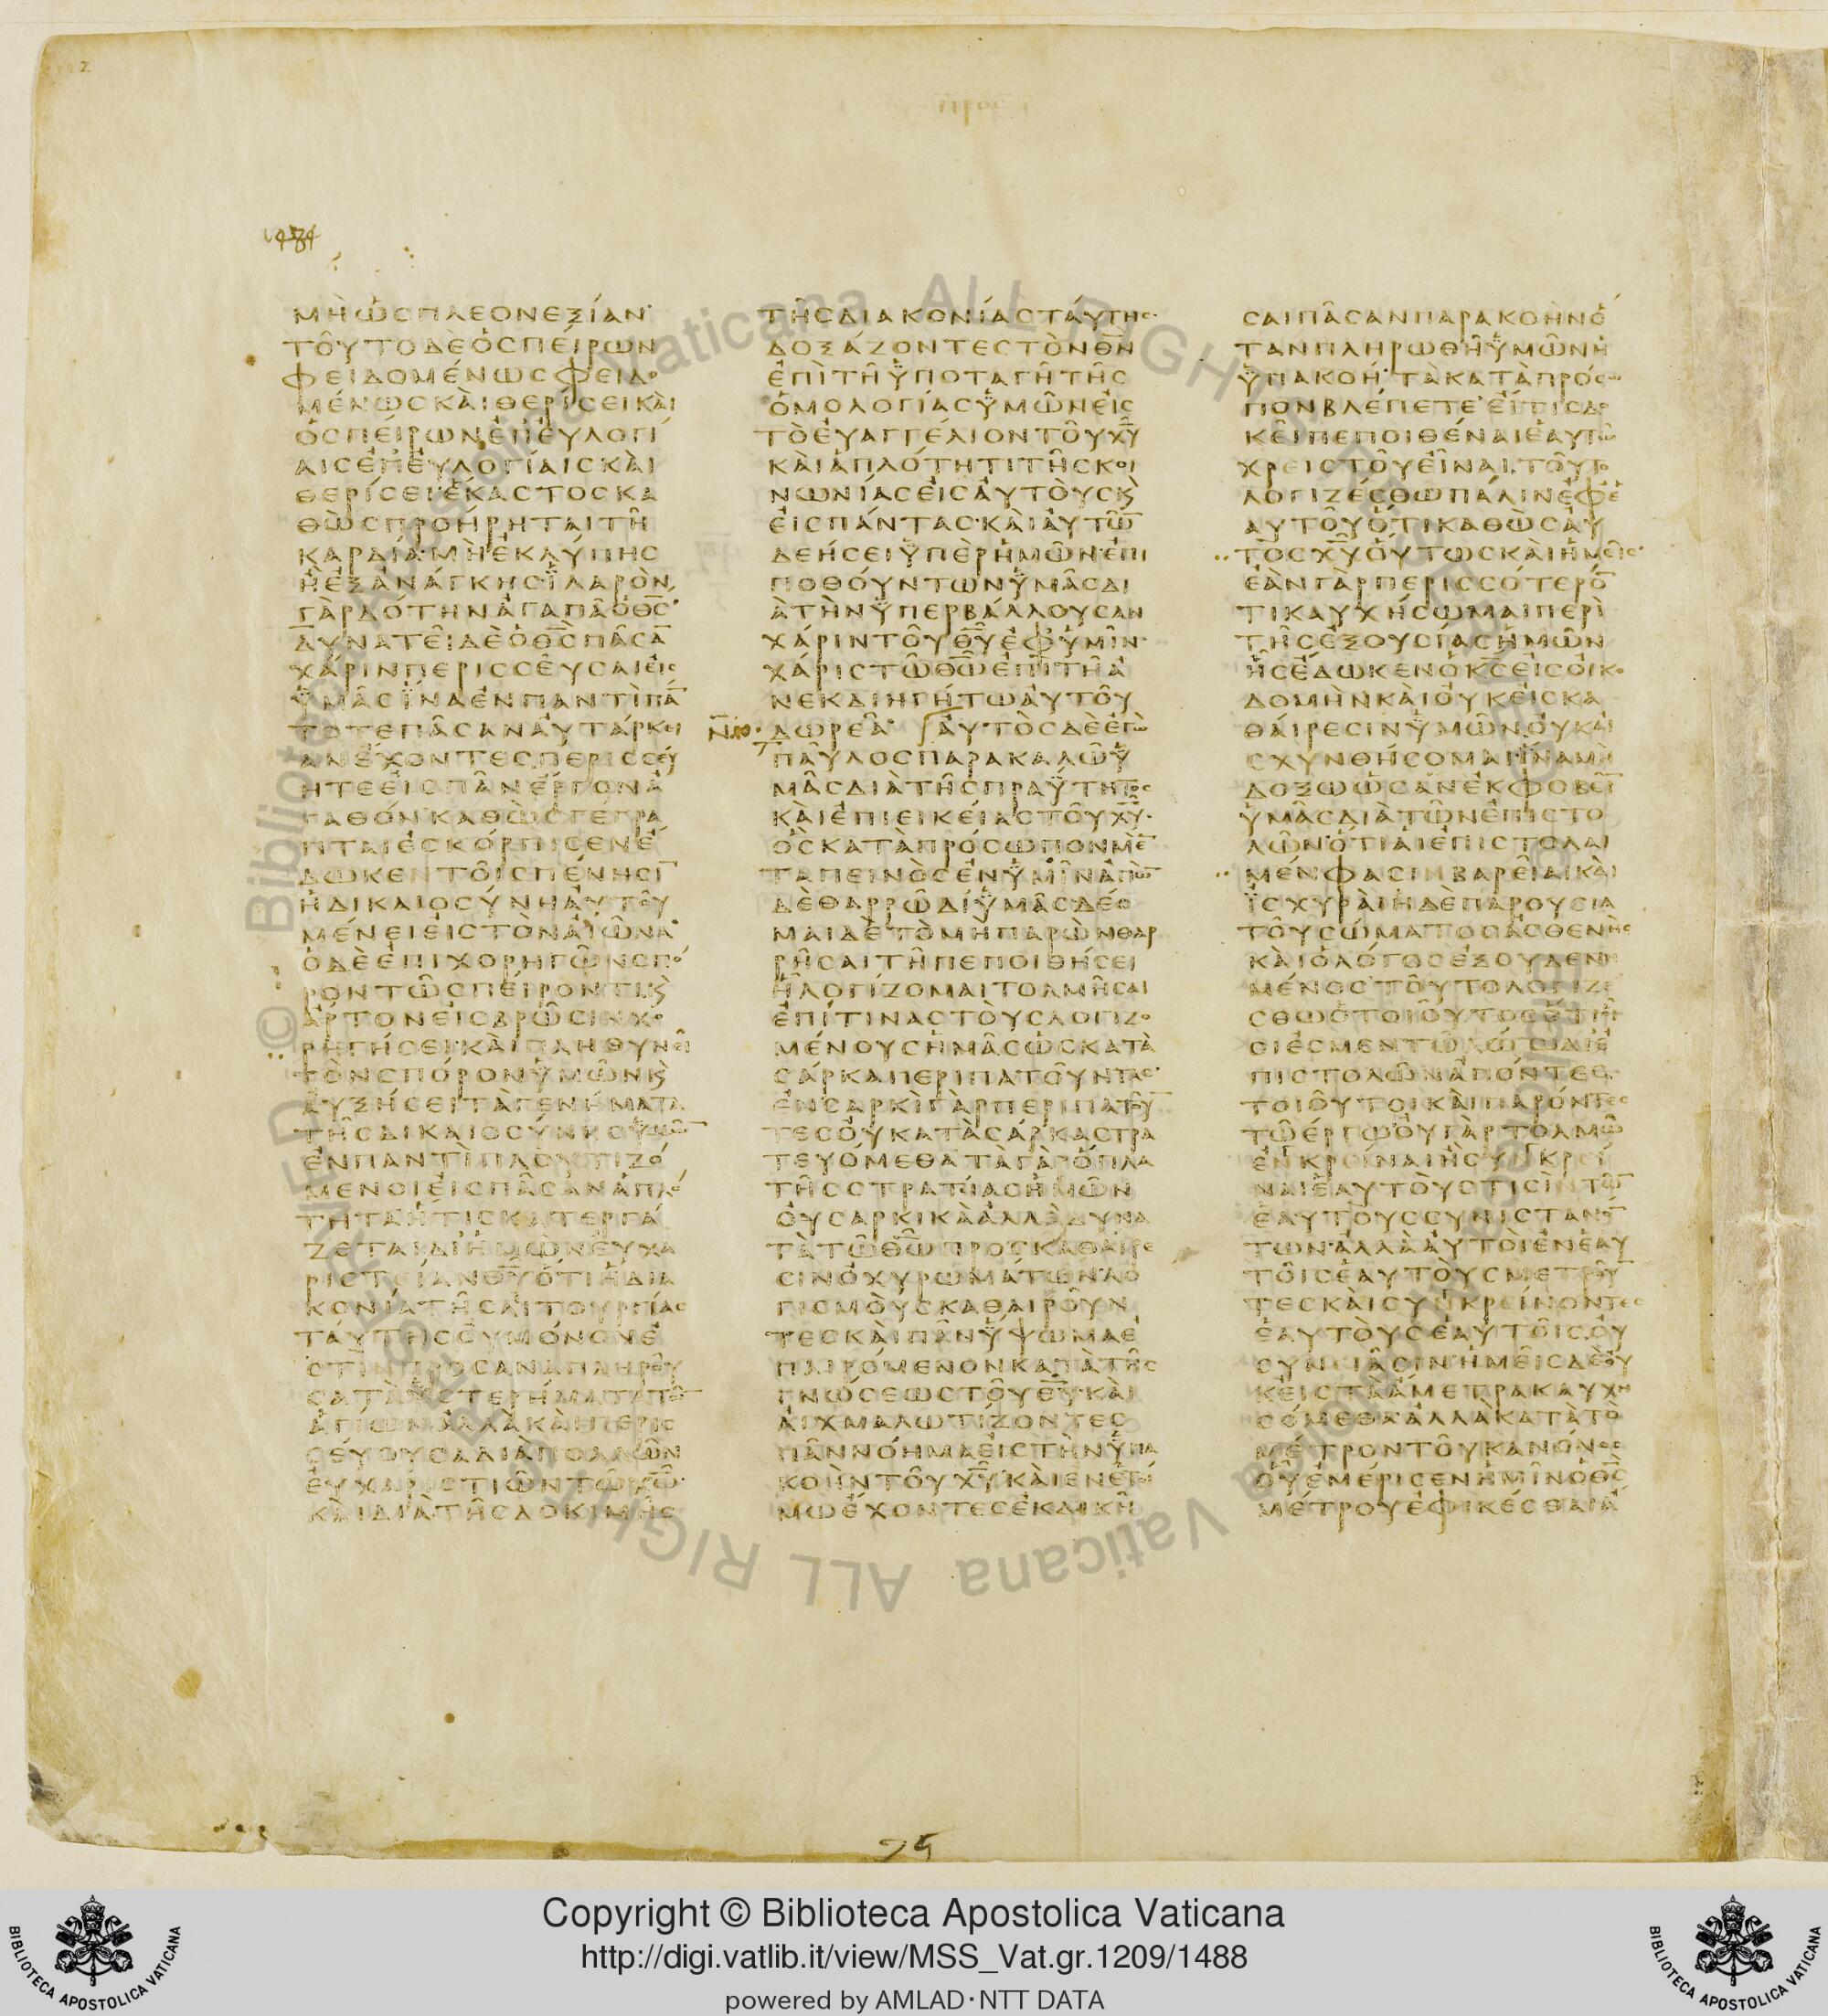 ΜΗ ΩΣ ΠΛΕΟΝΕΞΙΑΝ
ΤΟΥΤΟ ΔΕ Ο ΣΠΕΙΡΩΝ
ΦΕΙΔΟΜΕΝΩΣ ΦΕΙΔΟ
ΜΕΝΩΣ ΚΑΙ ΘΕΡΙΣΕΙ ΚΑΙ
Ο ΣΠΕΙΡΩΝ ΕΠ ΕΥΛΟΓΙ
ΑΙΣ ΕΠ ΕΥΛΟΓΙΑΙΣ ΚΑΙ
ΘΕΡΙΣΕΙ ΕΚΑΣΤΟΣ ΚΑ
ΘΩΣ ΠΡΟΗΡΗΤΑΙ ΤΗ
ΚΑΡΔΙΑ ΜΗ ΕΚ ΛΥΠΗΣ
Η ΕΞ ΑΝΑΓΚΗΣ ΙΛΑΡΟΝ
ΓΑΡ ΔΟΤΗΝ ΑΓΑΠΑ Ο ΘΣ
ΔΥΝΑΤΕΙ ΔΕ Ο ΘΣ ΠΑΣΑ
ΧΑΡΙΝ ΠΕΡΙΣΣΕΥΣΑΙ ΕΙΣ
ΥΜΑΣ ΙΝΑ ΕΝ ΠΑΝΤΙ ΠΑ
ΤΟΤΕ ΠΑΣΑΝ ΑΥΤΑΡΚΕΙ
ΑΝ ΕΧΟΝΤΕΣ ΠΕΡΙΣΣΕΥ
ΗΤΕ ΕΙΣ ΠΑΝ ΕΡΓΟΝ Α
ΓΑΘΟΝ ΚΑΘΩΣ ΓΕΓΡΑ
ΠΤΑΙ ΕΣΚΟΡΠΙΣΕΝ Ε
ΔΩΚΕΝ ΤΟΙΣ ΠΕΝΗΣΙ
Η ΔΙΚΑΙΟΣΥΝΗ ΑΥΤΟΥ
ΜΕΝΕΙ ΕΙΣ ΤΟΝ ΑΙΩΝΑ
Ο ΔΕ ΕΠΙΧΟΡΗΓΩΝ ΣΠΟ
ΡΟΝ ΤΩ ΣΠΕΙΡΟΝΤΙ Κ
ΑΡΤΟΝ ΕΙΣ ΒΡΩΣΙΝ ΧΟ
ΡΗΓΗΣΕΙ ΚΑΙ ΠΛΗΘΥΝΕΙ
ΤΟΝ ΣΠΟΡΟΝ ΥΜΩΝ Κ
ΑΥΞΗΣΕΙ ΤΑ ΓΕΝΗΜΑΤΑ
ΤΗΣ ΔΙΚΑΙΟΣΥΝΗΣ ΥΜΩ
ΕΝ ΠΑΝΤΙ ΠΛΟΥΤΙΖΟ
ΜΕΝΟΙ ΕΙΣ ΠΑΣΑΝ ΑΠΛΟ
ΤΗΤΑ ΗΤΙΣ ΚΑΤΕΡΓΑ
ΖΕΤΑΙ ΔΙ ΗΜΩΝ ΕΥΧΑ
ΡΙΣΤΙΑΝ ΘΥ ΟΤΙ Η ΔΙΑ
ΚΟΝΙΑ ΤΗΣ ΛΙΤΟΥΡΓΙΑΣ
ΤΑΥΤΗΣ ΟΥ ΜΟΝΟΝ Ε
ΣΤΙΝ ΠΡΟΣΑΝΑΠΛΗΡΟΥ
ΣΑ ΤΑ ΥΣΤΕΡΗΜΑΤΑ ΤΩ
ΑΓΙΩΝ ΑΛΛΑ ΚΑΙ ΠΕΡΙΣ
ΣΕΥΟΥΣΑ ΔΙΑ ΠΟΛΛΩΝ
ΕΥΧΑΡΙΣΤΙΩΝ ΤΩ ΧΩ
ΚΑΙ ΔΙΑ ΤΗΣ ΔΟΚΙΜΗΣ
ΤΗΣ ΔΙΑΚΟΝΙΑΣ ΤΑΥΤΗΣ
ΔΟΞΑΖΟΝΤΕΣ ΤΟΝ ΘΝ
ΕΠΙ ΤΗ ΥΠΟΤΑΓΗ ΤΗΣ
ΟΜΟΛΟΓΙΑΣ ΥΜΩΝ ΕΙΣ
ΤΟ ΕΥΑΓΓΕΛΙΟΝ ΤΟΥ ΧΥ
ΚΑΙ ΑΠΛΟΤΗΤΙ ΤΗΣ ΚΟΙ
ΝΩΝΙΑΣ ΕΙΣ ΑΥΤΟΥΣ Κ
ΕΙΣ ΠΑΝΤΑΣ ΚΑΙ ΑΥΤΩ
ΔΕΗΣΕΙ ΥΠΕΡ ΗΜΩΝ ΕΠΙ
ΠΟΘΟΥΝΤΩΝ ΥΜΑΣ ΔΙ
Α ΤΗΝ ΥΠΕΡΒΑΛΛΟΥΣΑΝ
ΧΑΡΙΝ ΤΟΥ ΘΥ ΕΦ ΥΜΙΝ
ΧΑΡΙΣ ΤΩ ΘΩ ΕΠΙ ΤΗ Α
ΝΕΚΔΙΗΓΗΤΩ ΑΥΤΟΥ
ΔΩΡΕΑ ΑΥΤΟΣ ΔΕ ΕΓΩ
ΠΑΥΛΟΣ ΠΑΡΑΚΑΛΩ Υ
ΜΑΣ ΔΙΑ ΤΗΣ ΠΡΑΥΤΗΤΟΣ
ΚΑΙ ΕΠΙΕΙΚΕΙΑΣ ΤΟΥ ΧΥ
ΟΣ ΚΑΤΑ ΠΡΟΣΩΠΟΝ ΜΕ
ΤΑΠΕΙΝΟΣ ΕΝ ΥΜΙΝ ΑΠΩ
ΔΕ ΘΑΡΡΩ ΔΙ ΥΜΑΣ ΔΕΟ
ΜΑΙ ΔΕ ΤΟ ΜΗ ΠΑΡΩΝ ΘΑΡ
ΡΗΣΑΙ ΤΗ ΠΕΠΟΙΘΗΣΕΙ
Η ΛΟΓΙΖΟΜΑΙ ΤΟΛΜΗΣΑΙ
ΕΠΙ ΤΙΝΑΣ ΤΟΥΣ ΛΟΓΙΖΟ
ΜΕΝΟΥΣ ΗΜΑΣ ΩΣ ΚΑΤΑ
ΣΑΡΚΑ ΠΕΡΙΠΑΤΟΥΝΤΑΣ
ΕΝ ΣΑΡΚΙ ΓΑΡ ΠΕΡΙΠΑΤΟΥ
ΤΕΣ ΟΥ ΚΑΤΑ ΣΑΡΚΑ ΣΤΡΑ
ΤΕΥΟΜΕΘΑ ΤΑ ΓΑΡ ΟΠΛΑ
ΤΗΣ ΣΤΡΑΤΙΑΣ ΗΜΩΝ
ΟΥ ΣΑΡΚΙΚΑ ΑΛΛΑ ΔΥΝΑ
ΤΑ ΤΩ ΘΩ ΠΡΟΣ ΚΑΘΑΙΡΕ
ΣΙΝ ΟΧΥΡΩΜΑΤΩΝ ΛΟ
ΓΙΣΜΟΥΣ ΚΑΘΑΙΡΟΥΝ
ΤΕΣ ΚΑΙ ΠΑΝ ΥΨΩΜΑ Ε
ΠΑΙΡΟΜΕΝΟΝ ΚΑΤΑ ΤΗΣ
ΓΝΩΣΕΩΣ ΤΟΥ ΘΥ ΚΑΙ
ΑΙΧΜΑΛΩΤΙΖΟΝΤΕΣ
ΠΑΝ ΝΟΗΜΑ ΕΙΣ ΤΗΝ ΥΠΑ
ΚΟΗΝ ΤΟΥ ΧΥ ΚΑΙ ΕΝ ΕΤΟΙ
ΜΩ ΕΧΟΝΤΕΣ ΕΚΔΙΚΗ
ΣΑΙ ΠΑΣΑΝ ΠΑΡΑΚΟΗΝ Ο
ΤΑΝ ΠΛΗΡΩΘΗ ΥΜΩΝ Η
ΥΠΑΚΟΗ ΤΑ ΚΑΤΑ ΠΡΟΣΩ
ΠΟΝ ΒΛΕΠΕΤΕ ΕΙ ΤΙΣ ΔΟ
ΚΕΙ ΠΕΠΟΙΘΕΝΑΙ ΕΑΥΤΩ
ΧΡΕΙΣΤΟΥ ΕΙΝΑΙ ΤΟΥΤΟ
ΛΟΓΙΖΕΣΘΩ ΠΑΛΙΝ ΕΦ Ε
ΑΥΤΟΥ ΟΤΙ ΚΑΘΩΣ ΑΥ
ΤΟΣ ΧΥ ΟΥΤΩΣ ΚΑΙ ΗΜΕΙΣ
ΕΑΝ ΓΑΡ ΠΕΡΙΣΣΟΤΕΡΟ
ΤΙ ΚΑΥΧΗΣΩΜΑΙ ΠΕΡΙ
ΤΗΣ ΕΞΟΥΣΙΑΣ ΗΜΩΝ
ΗΣ ΕΔΩΚΕΝ Ο ΚΣ ΕΙΣ ΟΙΚΟ
ΔΟΜΗΝ ΚΑΙ ΟΥΚ ΕΙΣ ΚΑ
ΘΑΙΡΕΣΙΝ ΥΜΩΝ ΟΥΚ ΑΙ
ΣΧΥΝΘΗΣΟΜΑΙ ΙΝΑ ΜΗ
ΔΟΞΩ ΩΣ ΑΝ ΕΚΦΟΒΕΙ
ΥΜΑΣ ΔΙΑ ΤΩΝ ΕΠΙΣΤΟ
ΛΩΝ ΟΤΙ ΑΙ ΕΠΙΣΤΟΛΑΙ
ΜΕΝ ΦΑΣΙΝ ΒΑΡΕΙΑΙ ΚΑΙ
ΙΣΧΥΡΑΙ Η ΔΕ ΠΑΡΟΥΣΙΑ
ΤΟΥ ΣΩΜΑΤΟΣ ΑΣΘΕΝΗΣ
ΚΑΙ Ο ΛΟΓΟΣ ΕΞΟΥΔΕΝΗ
ΜΕΝΟΣ ΤΟΥΤΟ ΛΟΓΙΖΕ
ΣΘΩ Ο ΤΟΙΟΥΤΟΣ ΟΤΙ
ΟΙ ΕΣΜΕΝ ΤΩ ΛΟΓΩ ΔΙ Ε
ΠΙΣΤΟΛΩΝ ΑΠΟΝΤΕΣ
ΤΟΙΟΥΤΟΙ ΚΑΙ ΠΑΡΟΝΤΕΣ
ΤΩ ΕΡΓΩ ΟΥ ΓΑΡ ΤΟΛΜΩ
ΕΝΚΡΕΙΝΑΙ Η ΣΥΝΚΡΕΙ
ΝΑΙ ΕΑΥΤΟΥΣ ΤΙΣΙΝ ΤΩ
ΕΑΥΤΟΥΣ ΣΥΝΙΣΤΑΝ
ΤΩΝ ΑΛΛΑ ΑΥΤΟΙ ΕΝ ΕΑΥ
ΤΟΙΣ ΕΑΥΤΟΥΣ ΜΕΤΡΟΥ
ΤΕΣ ΚΑΙ ΣΥΝΚΡΕΙΝΟΝΤΕΣ
ΕΑΥΤΟΥΣ ΕΑΥΤΟΙΣ ΟΥ
ΣΥΝΙΑΣΙΝ ΗΜΕΙΣ ΔΕ ΟΥ
Κ ΕΙΣ ΤΑ ΑΜΕΤΡΑ ΚΑΥΧΗ
ΣΟΜΕΘΑ ΑΛΛΑ ΚΑΤΑ ΤΟ
ΜΕΤΡΟΝ ΤΟΥ ΚΑΝΟΝΟΣ
ΟΥ ΕΜΕΡΙΣΕΝ ΗΜΙΝ Ο ΘΣ
ΜΕΤΡΟΥ ΕΦΙΚΕΣΘΑΙ Α
Copyright © Biblioteca Apostolica Vaticana
http://digi.vatlib.it/view/MSS_Vat.gr.1209/1488
powered by AMLAD·NTT DATA
BIBLIOTECA APOSTOLICA VATICANA
BIBLIOTECA APOSTOLICA VATICANA